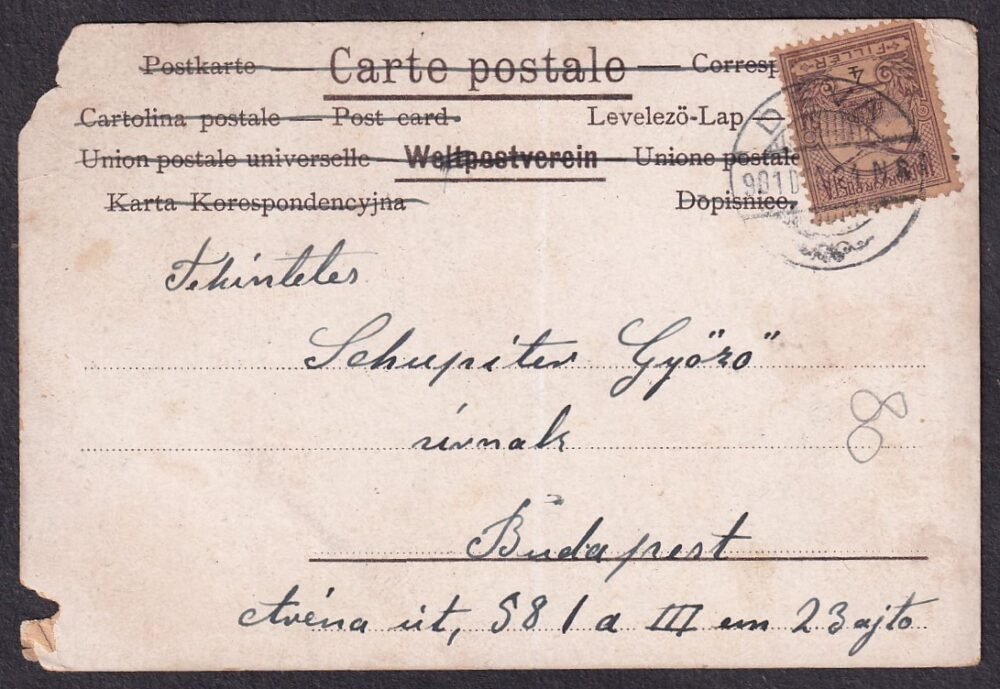 Postkarte Carte postale Corresp
Cartolina postale Post card. Levelezö-Lap
Union postale universelle Weltpostverein Unione postale
Karta Korespondencyjna Dopisnice.
FILLÉR
4
901 D
Tekintetes
Schupiter Győző
úrnak
Budapest
Aréna út, 58 / a III em 23 ajto
8